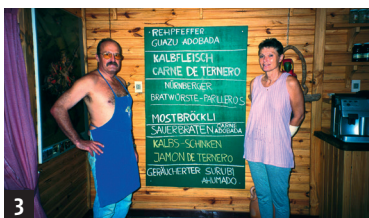 REHPFEFFER
GUAZU ADOBADA
KALBFLEISCH
CARNE DE TERNERO
NÜRNBERGER
BRATWÜRSTE-PARILLEROS
MOSTBRÖCKLI
SAUERBRATEN CARNE ADOBADA
KALBS-SCHINKEN
JAMON DE TERNERO
GERÄUCHERTER SURUBI
AHUMADO
3